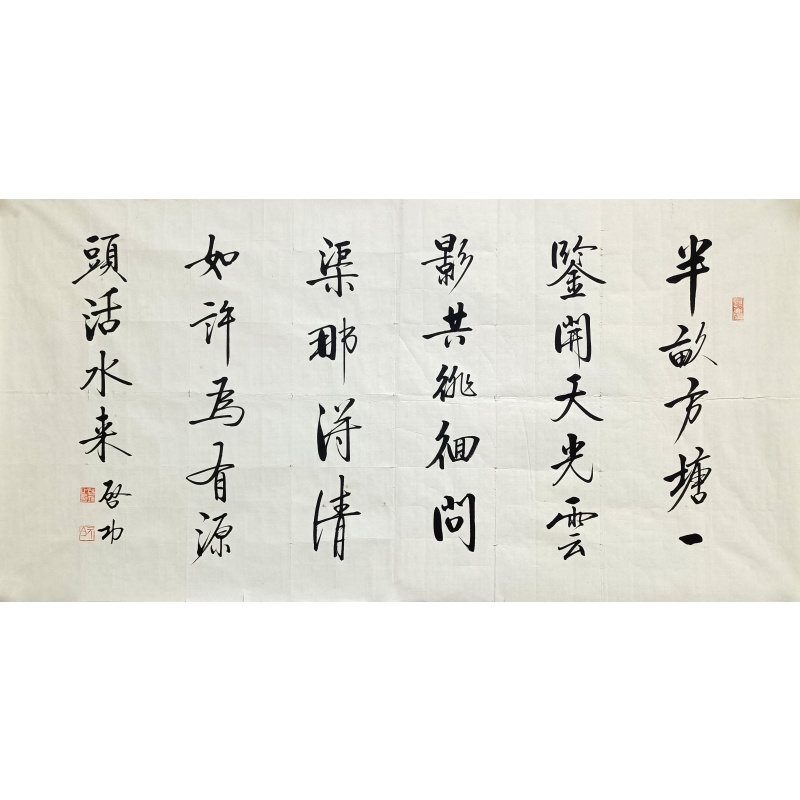 半畝方塘一
鑒開天光雲
影共徘徊問
渠那得清
如許為有源
頭活水来
啓功